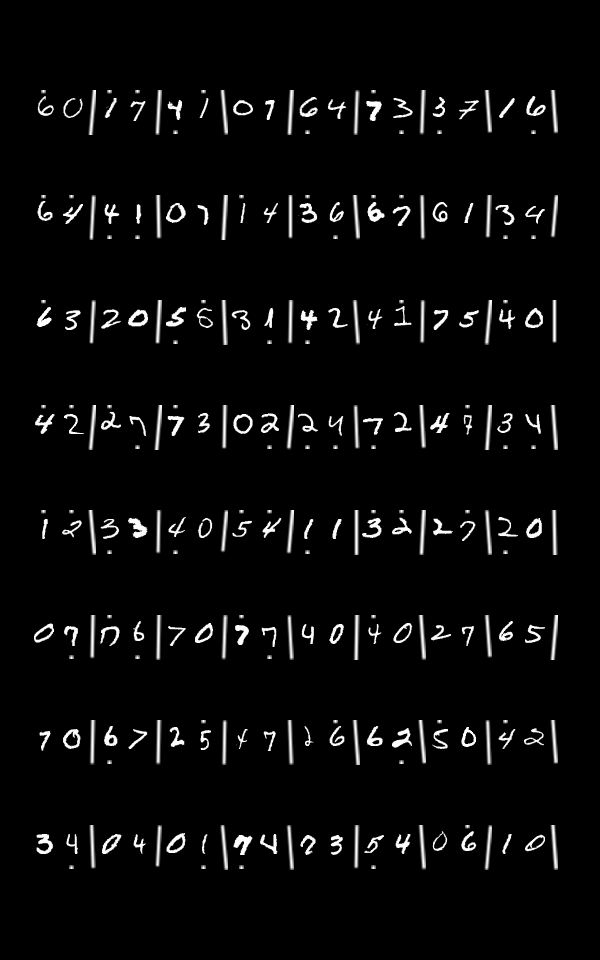 6 0 | 1 7 | 4 1 | 0 7 | 6 4 | 7 3 | 3 7 | 1 6 |
6 4 | 4 1 | 0 7 | 1 4 | 3 6 | 6 7 | 6 1 | 3 4 |
6 3 | 2 0 | 5 6 | 3 1 | 4 2 | 4 1 | 7 5 | 4 0 |
4 2 | 2 7 | 7 3 | 0 2 | 2 4 | 7 2 | 4 7 | 3 4 |
1 2 | 3 3 | 4 0 | 5 4 | 1 1 | 3 2 | 2 7 | 2 0 |
0 7 | 7 6 | 7 0 | 7 7 | 4 0 | 4 0 | 2 7 | 6 5 |
7 0 | 6 7 | 2 5 | 4 7 | 1 6 | 6 2 | 5 0 | 4 2 |
3 4 | 0 4 | 0 1 | 7 4 | 7 3 | 5 4 | 0 6 | 1 0 |